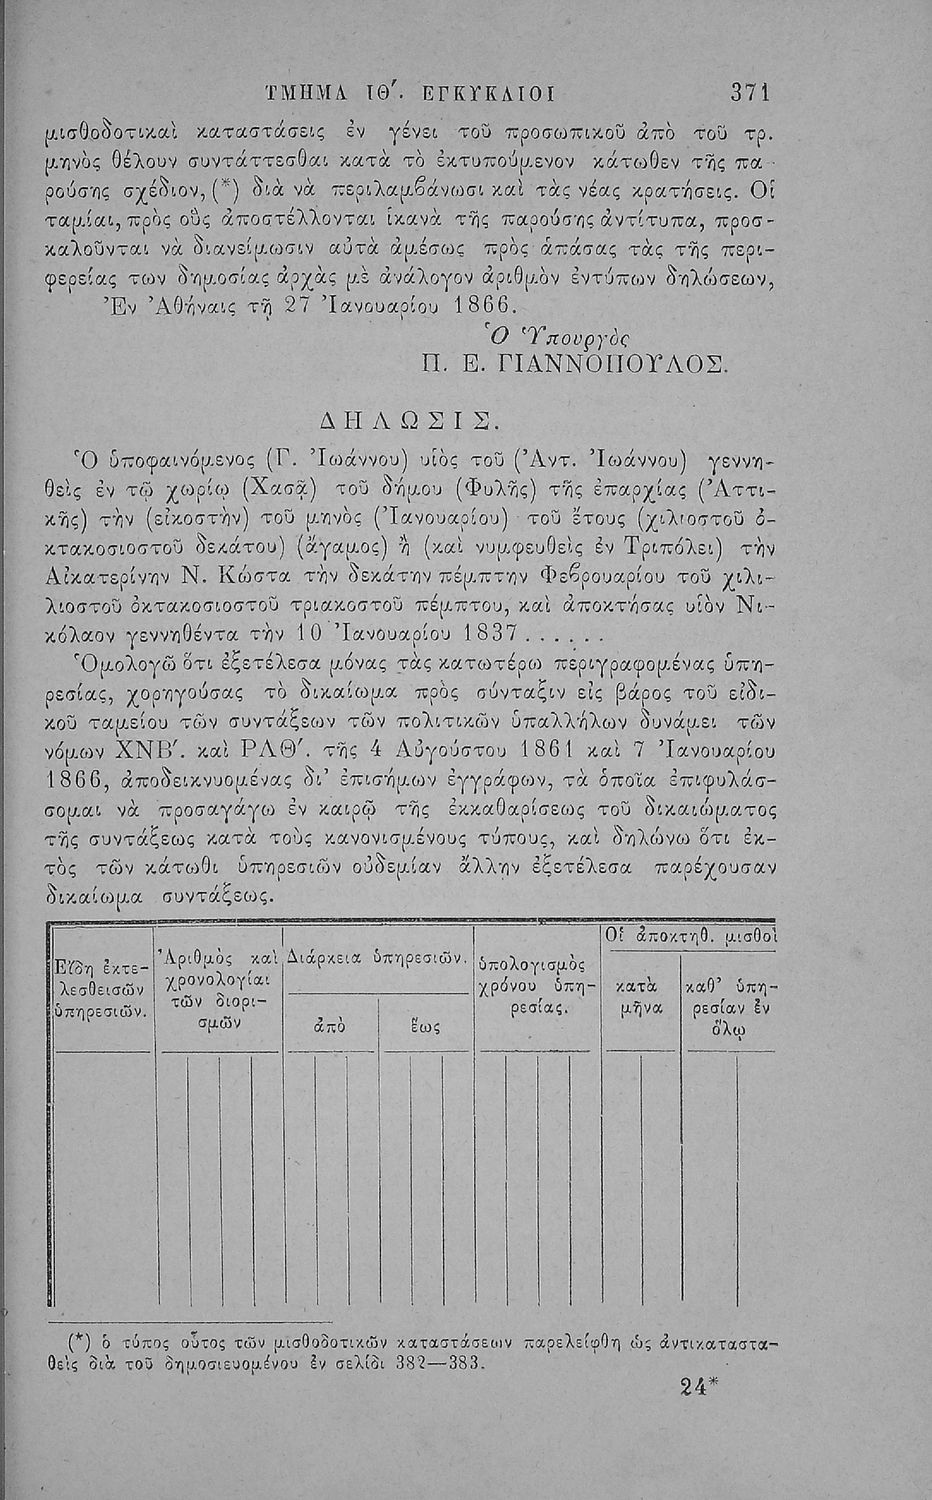 ΤΜΗΜΑ ΙΘ΄. ΕΓΚΥΚΛΙΟΙ 371
μισθοδοτικαὶ καταστάσεις ἐν γένει τοῦ προσωπικοῦ ἀπὸ τοῦ τρ.
μηνὸς θέλουν συντάττεσθαι κατὰ τὸ ἐκτυπούμενον κάτωθεν τῆς πα-
ρούσης σχέδιον, (*) διὰ νὰ περιλαμβάνωσι καὶ τὰς νέας κρατήσεις. Οἱ
ταμίαι, πρὸς οὓς ἀποστέλλονται ἱκανὰ τῆς παρούσης ἀντίτυπα, προσ-
καλοῦνται νὰ διανείμωσιν αὐτὰ ἀμέσως πρὸς ἁπάσας τὰς τῆς περι-
φερείας των δημοσίας ἀρχὰς μὲ ἀνάλογον ἀριθμὸν ἐντύπων δηλώσεων,
Ἐν Ἀθήναις τῇ 27 Ἰανουαρίου 1866.
Ὁ Ὑπουργὸς
Π. Ε. ΓΙΑΝΝΟΠΟΥΛΟΣ.
ΔΗΛΩΣΙΣ.
Ὁ ὑποφαινόμενος (Γ. Ἰωάννου) υἱὸς τοῦ (Ἀντ. Ἰωάννου) γεννη-
θεὶς ἐν τῷ χωρίῳ (Χασᾷ) τοῦ δήμου (Φυλῆς) τῆς ἐπαρχίας (Ἀττι-
κῆς) τὴν (εἰκοστὴν) τοῦ μηνὸς (Ἰανουαρίου) τοῦ ἔτους (χιλιοστοῦ ὀ-
κτακοσιοστοῦ δεκάτου) (ἄγαμος) ἢ (καὶ νυμφευθεὶς ἐν Τριπόλει) τὴν
Αἰκατερίνην Ν. Κώστα τὴν δεκάτην πέμπτην Φεβρουαρίου τοῦ χιλι-
λιοστοῦ ὀκτακοσιοστοῦ τριακοστοῦ πέμπτου, καὶ ἀποκτήσας υἱὸν Νι-
κόλαον γεννηθέντα τὴν 10 Ἰανουαρίου 1837......
Ὁμολογῶ ὅτι ἐξετέλεσα μόνας τὰς κατωτέρω περιγραφομένας ὑπη-
ρεσίας, χορηγούσας τὸ δικαίωμα πρὸς σύνταξιν εἰς βάρος τοῦ εἰδι-
κοῦ ταμείου τῶν συντάξεων τῶν πολιτικῶν ὑπαλλήλων δυνάμει τῶν
νόμων ΧΝΒ΄. καὶ ΡΛΘ΄. τῆς 4 Αὐγούστου 1861 καὶ 7 Ἰανουαρίου
1866, ἀποδεικνυομένας δι’ ἐπισήμων ἐγγράφων, τὰ ὁποῖα ἐπιφυλάσ-
σομαι νὰ προσαγάγω ἐν καιρῷ τῆς ἐκκαθαρίσεως τοῦ δικαιώματος
τῆς συντάξεως κατὰ τοὺς κανονισμένους τύπους, καὶ δηλώνω ὅτι ἐκ-
τὸς τῶν κάτωθι ὑπηρεσιῶν οὐδεμίαν ἄλλην ἐξετέλεσα παρέχουσαν
δικαίωμα συντάξεως.
Εἴδη ἐκτε-
λεσθεισῶν
ὑπηρεσιῶν.
Ἀριθμὸς καὶ
χρονολογίαι
τῶν διορι-
σμῶν
Διάρκεια ὑπηρεσιῶν.
ἀπὸ
ἕως
ὑπολογισμὸς
χρόνου ὑπη-
ρεσίας.
Οἱ ἀποκτηθ. μισθοὶ
κατὰ
μῆνα
καθ’ ὑπη-
ρεσίαν ἐν
ὅλῳ
(*) ὁ τύπος οὗτος τῶν μισθοδοτικῶν καταστάσεων παρελείφθη ὡς ἀντικαταστα-
θεὶς διὰ τοῦ δημοσιευομένου ἐν σελίδι 382—383.
24*